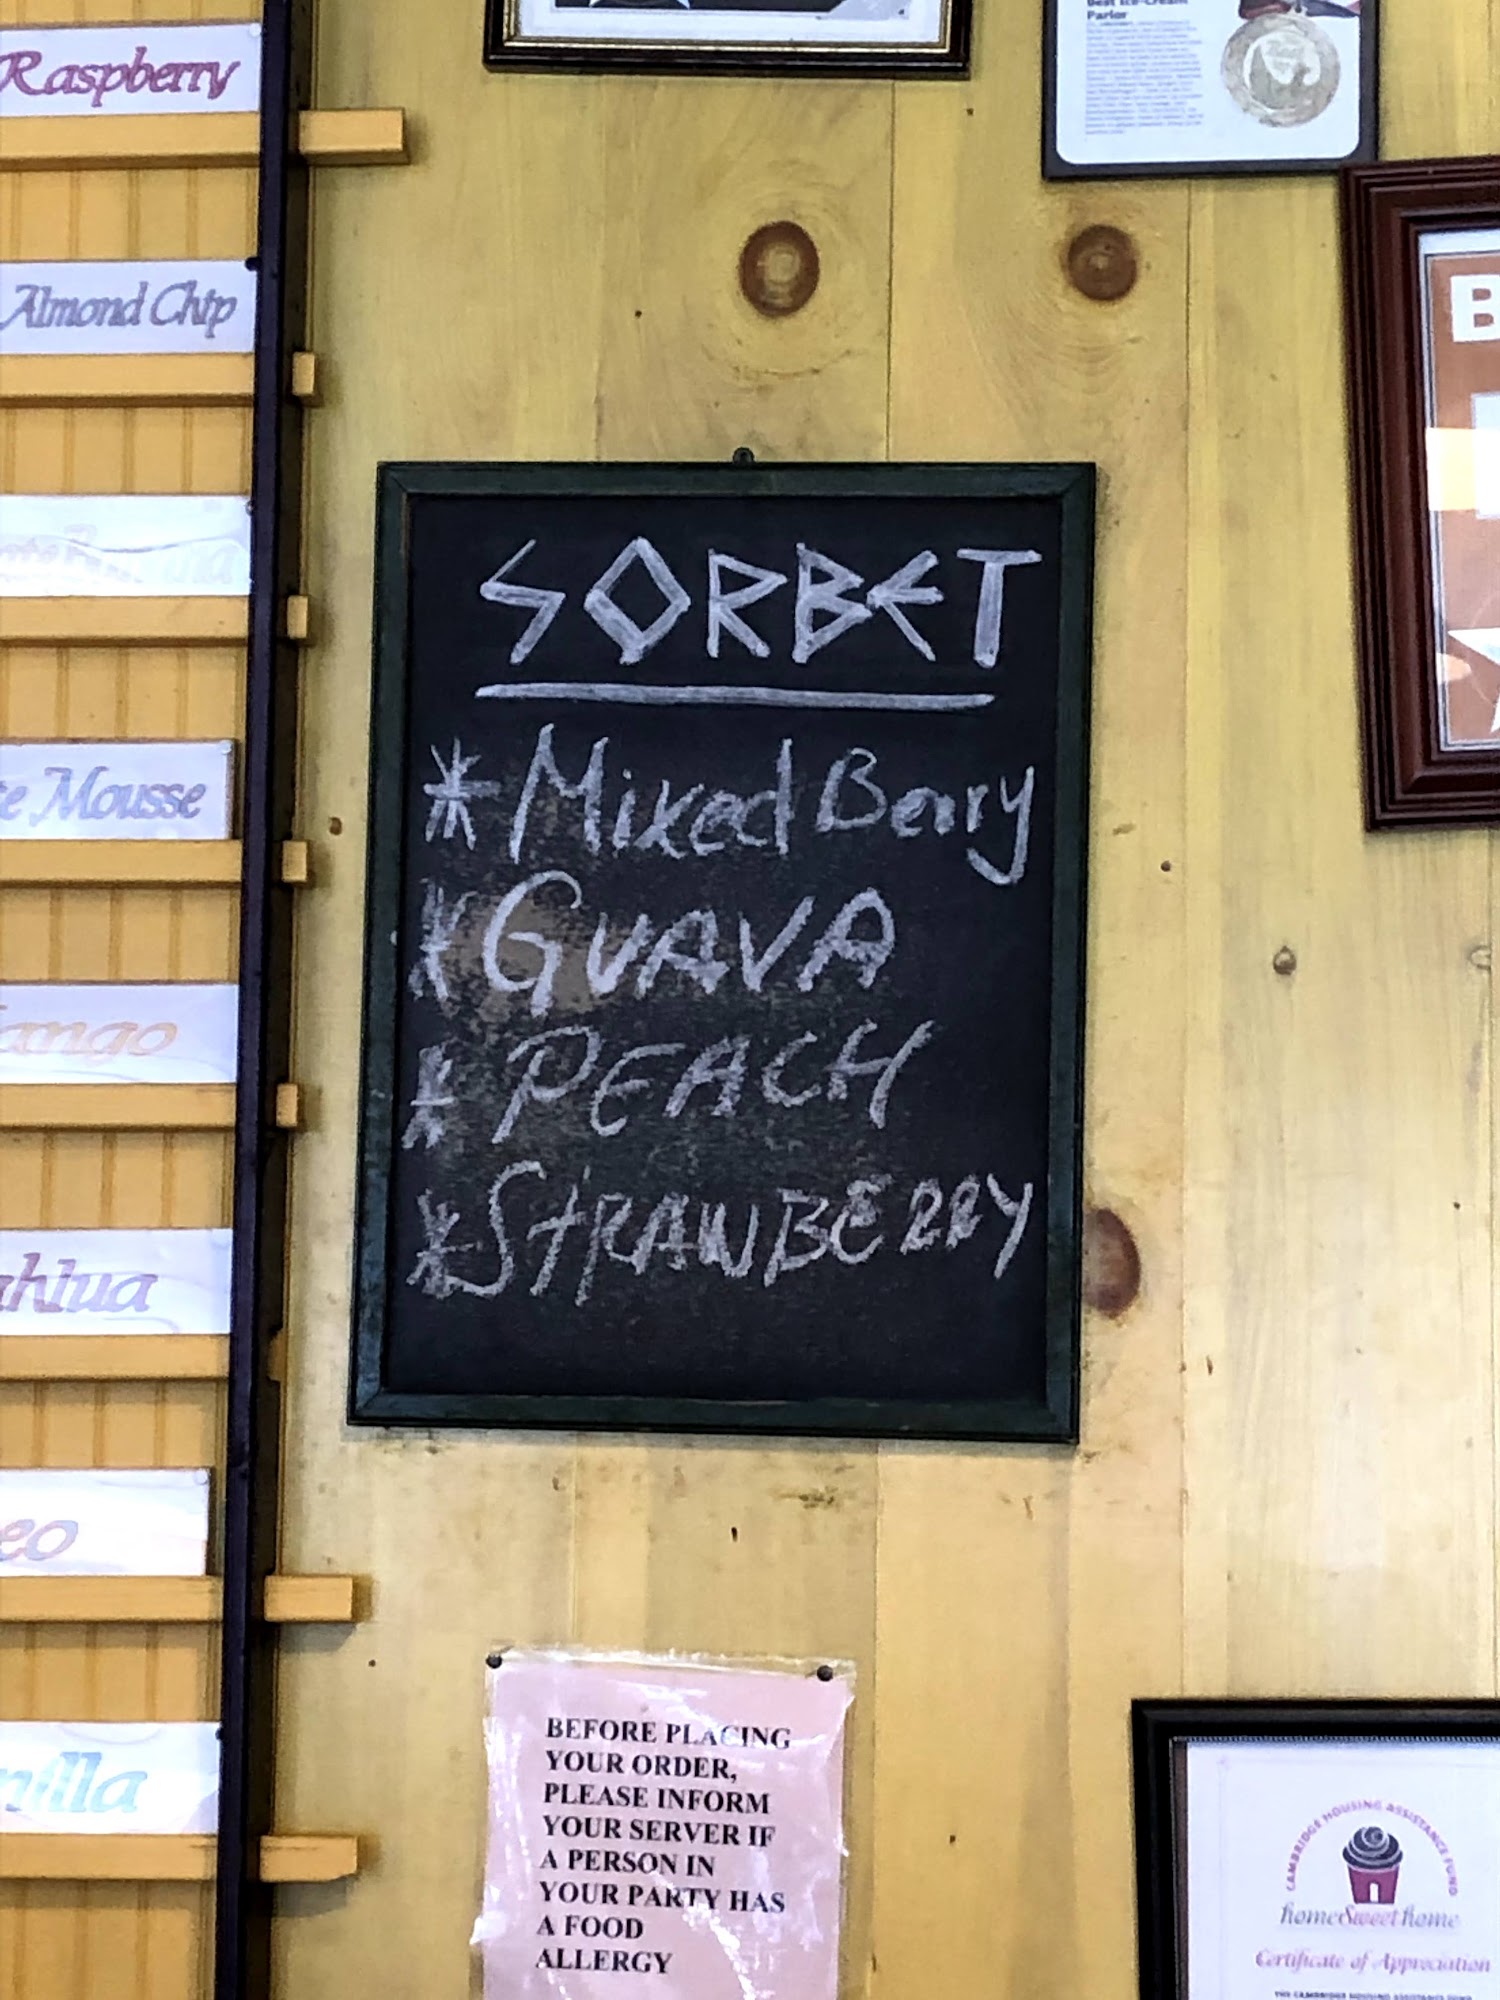 Best Ice-Cream
Parlor
Raspberry
Almond Chip
Mousse
B
SORBET
* Mixed Berry
* GUAVA
* PEACH
* STRAWBERRY
BEFORE PLACING
YOUR ORDER,
PLEASE INFORM
YOUR SERVER IF
A PERSON IN
YOUR PARTY HAS
A FOOD
ALLERGY
CAMBRIDGE HOUSING ASSISTANCE FUND
homeSweethome
Certificate of Appreciation
THE CAMBRIDGE HOUSING ASSISTANCE FUND